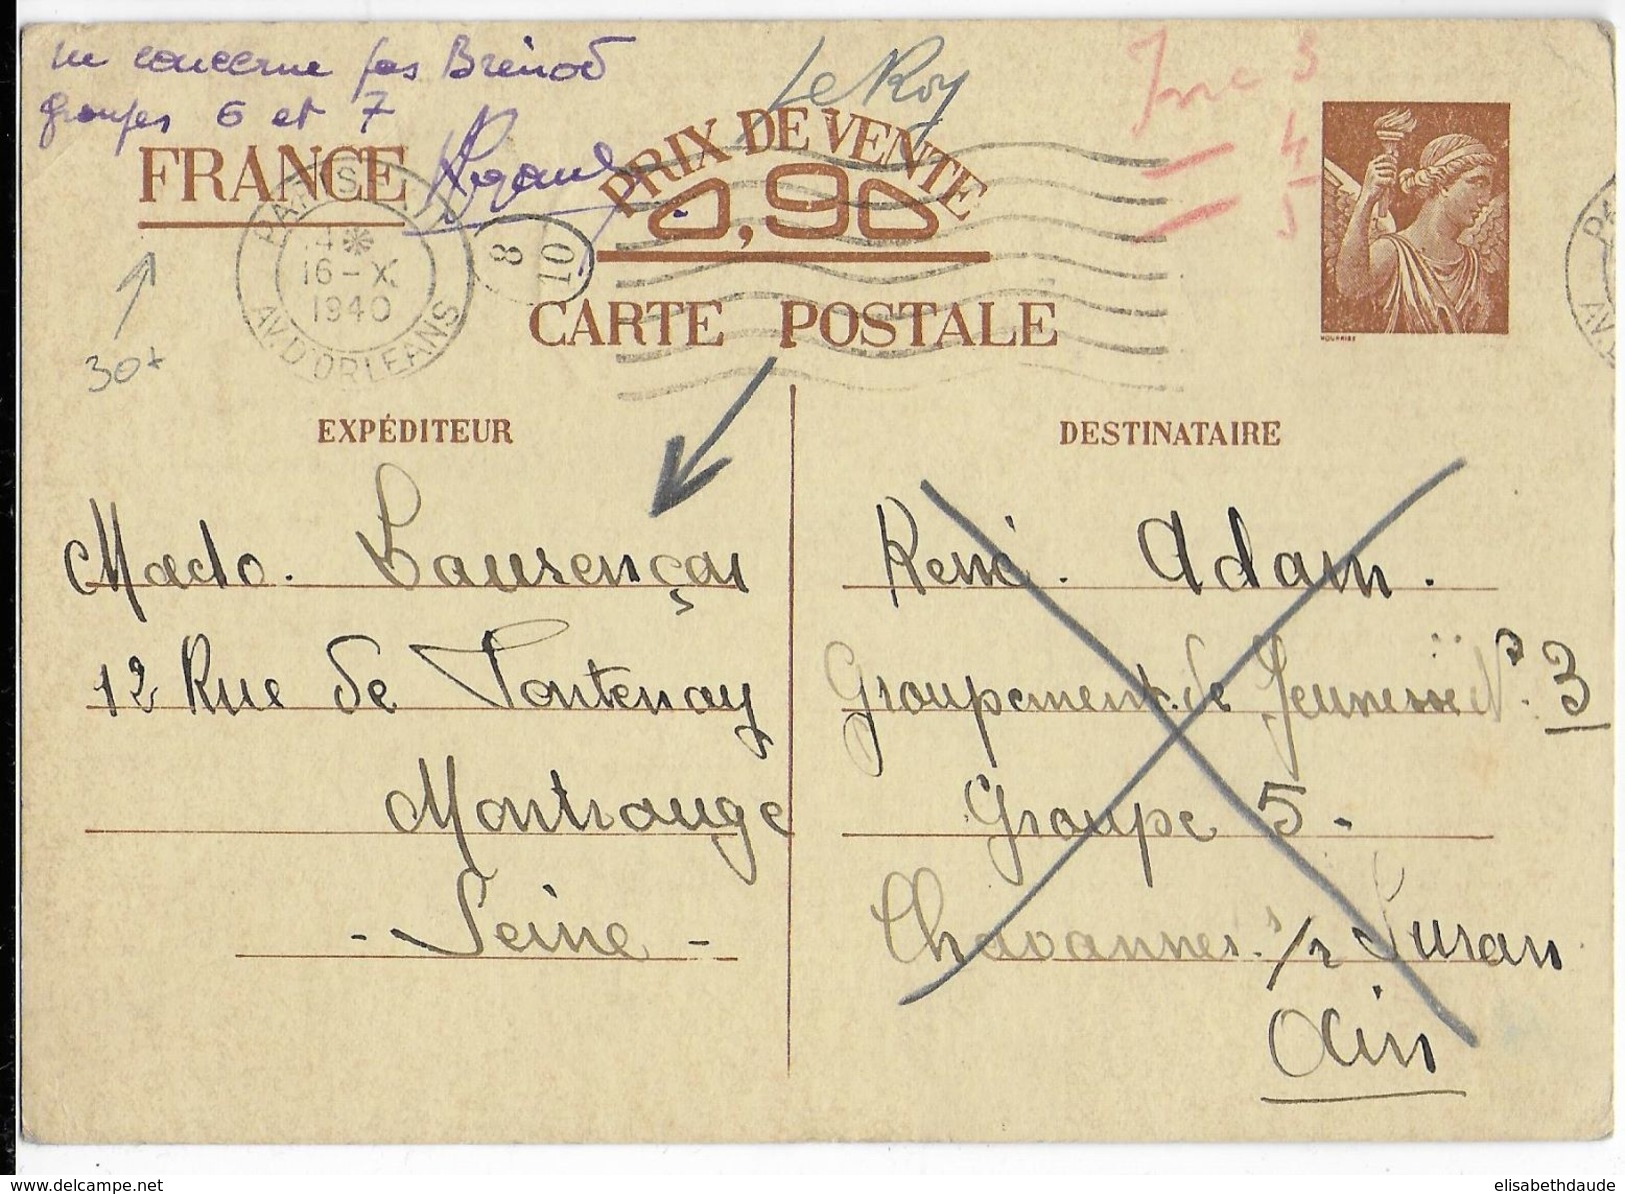 ne concerne pas Brénod
groupes 6 et 7
Le Roy
Inc 3
4
5
FRANCE
PRIX DE VENTE
0,90
PARIS XIV
14 *
16-X
1940
AV. D'ORLEANS
8
10
CARTE POSTALE
30+
EXPÉDITEUR
Mado. Laurençar
12 Rue de Fontenay
Montrouge
- Seine -
DESTINATAIRE
René. Adam.
Groupement. de Jeunesse N°. 3
Groupe 5-
Chavannes. s/r Suran
Ain
delcampe.net
elisabethdaude